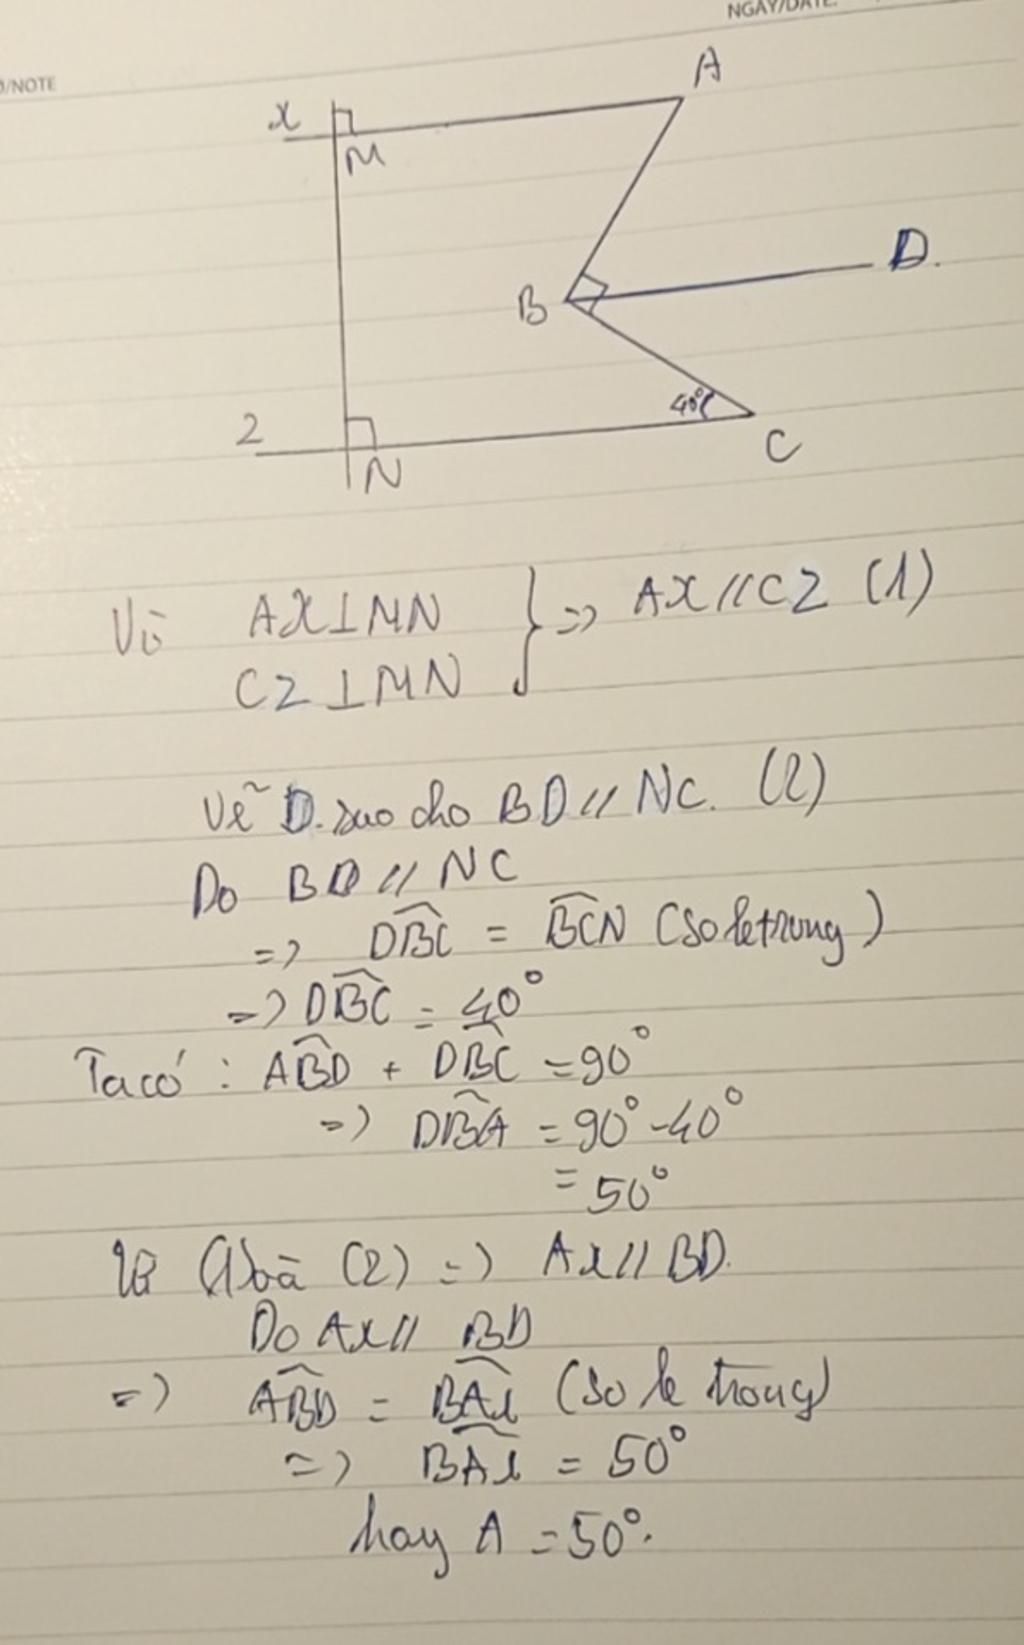 NGÀY/DATE:
/NOTE
A
x
M
D.
B
40°
2
C
N
Vì AX⊥MN } => AX // C2 (1)
C2⊥MN
Vẽ D. sao cho BD // NC. (2)
Do BD // NC
=> DBC = BCN (so le trung)
=> DBC = 40°
Ta có : ABD + DBC = 90°
=> DBA = 90° - 40°
= 50°
(1) và (2) => Ax // BD.
Do Ax // BD
=> ABD = BAx (so le trong)
=> BAx = 50°
hay A = 50°.